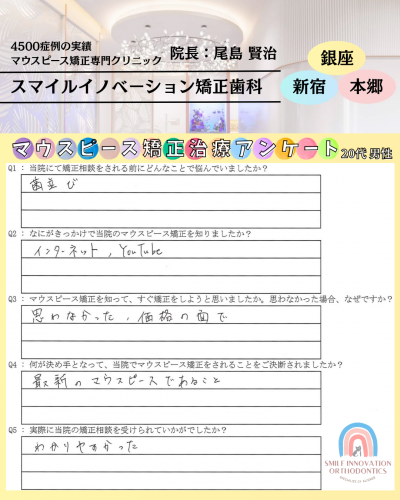 4500症例の実績
マウスピース矯正専門クリニック 院長：尾島 賢治
スマイルイノベーション矯正歯科
銀座
新宿 本郷
マウスピース矯正治療アンケート 20代 男性
Q1 : 当院にて矯正相談をされる前にどんなことで悩んでいましたか？
歯並び
Q2 : なにがきっかけで当院のマウスピース矯正を知りましたか？
インターネット, YouTube
Q3 : マウスピース矯正を知って、すぐ矯正をしようと思いましたか。思わなかった場合、なぜですか？
思わなかった, 価格の面で
Q4 : 何が決め手となって、当院でマウスピース矯正をされることをご決断されましたか？
最新のマウスピースであること
Q5 : 実際に当院の矯正相談を受けられていかがでしたか？
わかりやすかった
SMILE INNOVATION
ORTHODONTICS